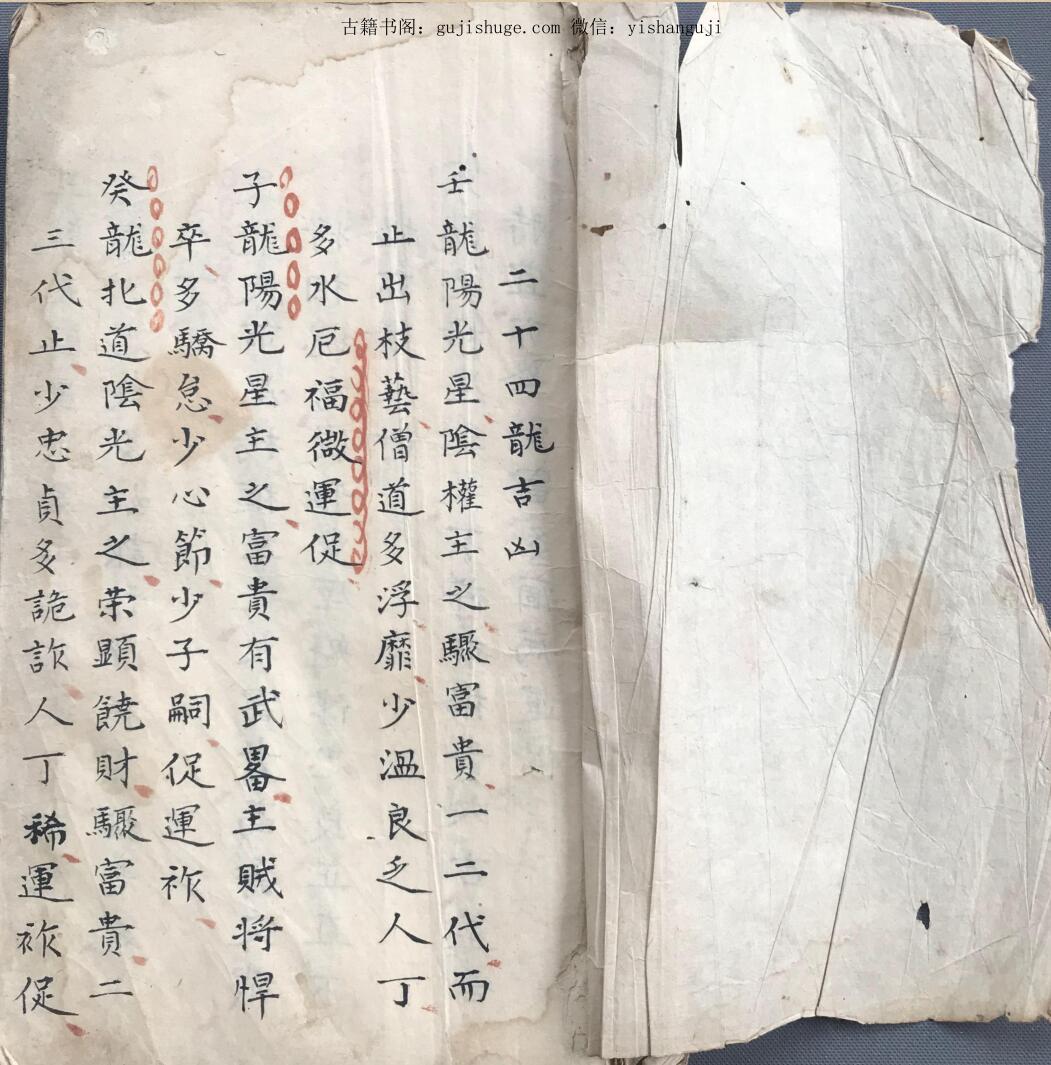 古籍书阁：gujishuge.com 微信：yishanguji
二十四龍吉凶
壬龍陽光星陰權主之驟富貴一二代而
止出枝藝僧道多浮靡少溫良乏人丁
多水厄福微運促
子龍陽光星主之富貴有武畧主賊将悍
卒多驕怠少心節少子嗣促運祚
癸龍北道陰光主之荣顕饒財驟富貴二
三代止少忠貞多詭詐人丁稀運祚促